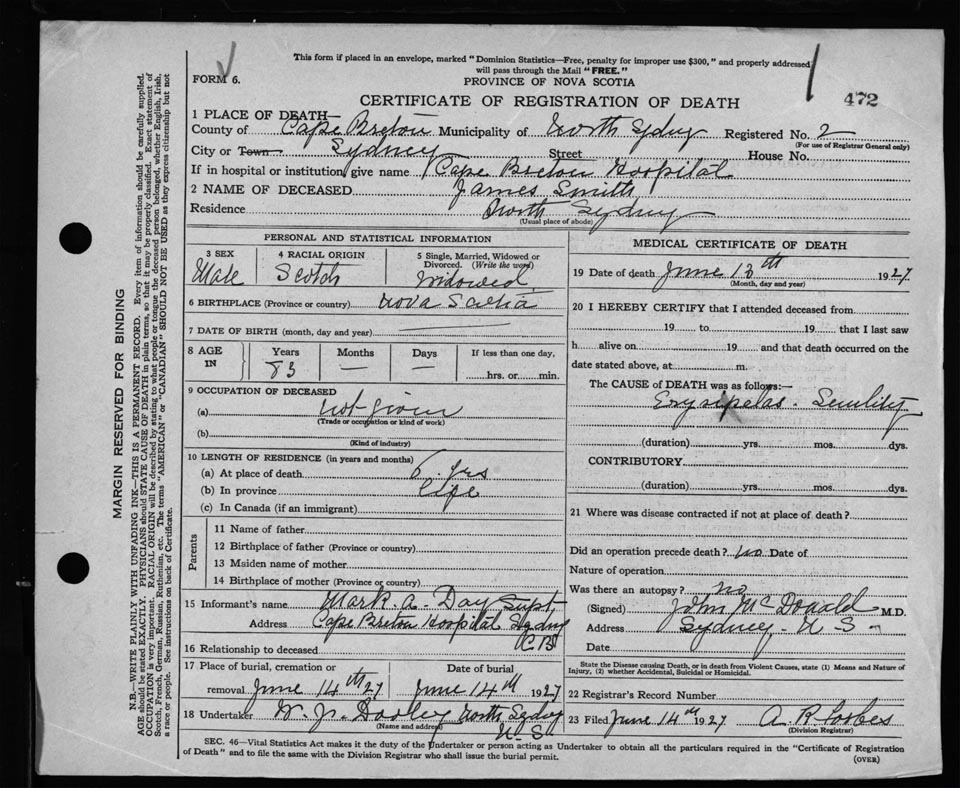 This form if placed in an envelope, marked "Dominion Statistics—Free, penalty for improper use $300," and properly addressed
will pass through the Mail "FREE."
FORM 6.
PROVINCE OF NOVA SCOTIA
CERTIFICATE OF REGISTRATION OF DEATH
472
1 PLACE OF DEATH—
County of Cape Breton Municipality of North Sydney Registered No. 2
(For use of Registrar General only)
City or Town Sydney Street House No.
If in hospital or institution give name Cape Breton Hospital
2 NAME OF DECEASED James Smith
Residence North Sydney
(Usual place of abode)
PERSONAL AND STATISTICAL INFORMATION
3 SEX Male
4 RACIAL ORIGIN Scotch
5 Single, Married, Widowed or Divorced. (Write the word) Widowed
6 BIRTHPLACE (Province or country) Nova Scotia
7 DATE OF BIRTH (month, day and year)
8 AGE IN
Years Months Days If less than one day,
83 — — hrs. or min.
9 OCCUPATION OF DECEASED
(a) not given
(Trade or occupation or kind of work)
(b)
(Kind of industry)
10 LENGTH OF RESIDENCE (in years and months)
(a) At place of death yrs
(b) In province life
(c) In Canada (if an immigrant)
Parents
11 Name of father
12 Birthplace of father (Province or country)
13 Maiden name of mother
14 Birthplace of mother (Province or country)
15 Informant's name Mark A. Day Supt,
Address Cape Breton Hospital Sydney
C B
16 Relationship to deceased
17 Place of burial, cremation or Date of burial
removal June 14th 27 June 14th 1927
18 Undertaker W. J. Dooley North Sydney
(Name and address) N-S
MEDICAL CERTIFICATE OF DEATH
19 Date of death June 13th 1927
(Month, day and year)
20 I HEREBY CERTIFY that I attended deceased from
19 to 19 that I last saw
h alive on 19 and that death occurred on the
date stated above, at m.
The CAUSE of DEATH was as follows:—
Erysipelas - Senility
(duration) yrs. mos. dys.
CONTRIBUTORY
(duration) yrs. mos. dys.
21 Where was disease contracted if not at place of death?
Did an operation precede death? No Date of
Nature of operation
Was there an autopsy? no
(Signed) John McDonald M.D.
Address Sydney - N S -
Date
State the Disease causing Death, or in death from Violent Causes, state (1) Means and Nature of
Injury, (2) whether Accidental, Suicidal or Homicidal.
22 Registrar's Record Number
23 Filed June 14th 1927 A R Forbes
(Division Registrar)
SEC. 46—Vital Statistics Act makes it the duty of the Undertaker or person acting as Undertaker to obtain all the particulars required in the "Certificate of Registration
of Death" and to file the same with the Division Registrar who shall issue the burial permit.
(OVER)
MARGIN RESERVED FOR BINDING
N.B.—WRITE PLAINLY WITH UNFADING INK—THIS IS A PERMANENT RECORD. Every item of information should be carefully supplied.
AGE should be stated EXACTLY. PHYSICIANS should STATE CAUSE OF DEATH in plain terms, so that it may be properly classified. Exact statement of
OCCUPATION is very important. RACIAL ORIGIN will be described by stating to what people or tongue the deceased person belonged, whether English, Irish,
Scotch, French, German, Russian, Ruthenian, etc. The terms "AMERICAN" or "CANADIAN" SHOULD NOT BE USED as they express citizenship but not
a race or people. See instructions on back of Certificate.